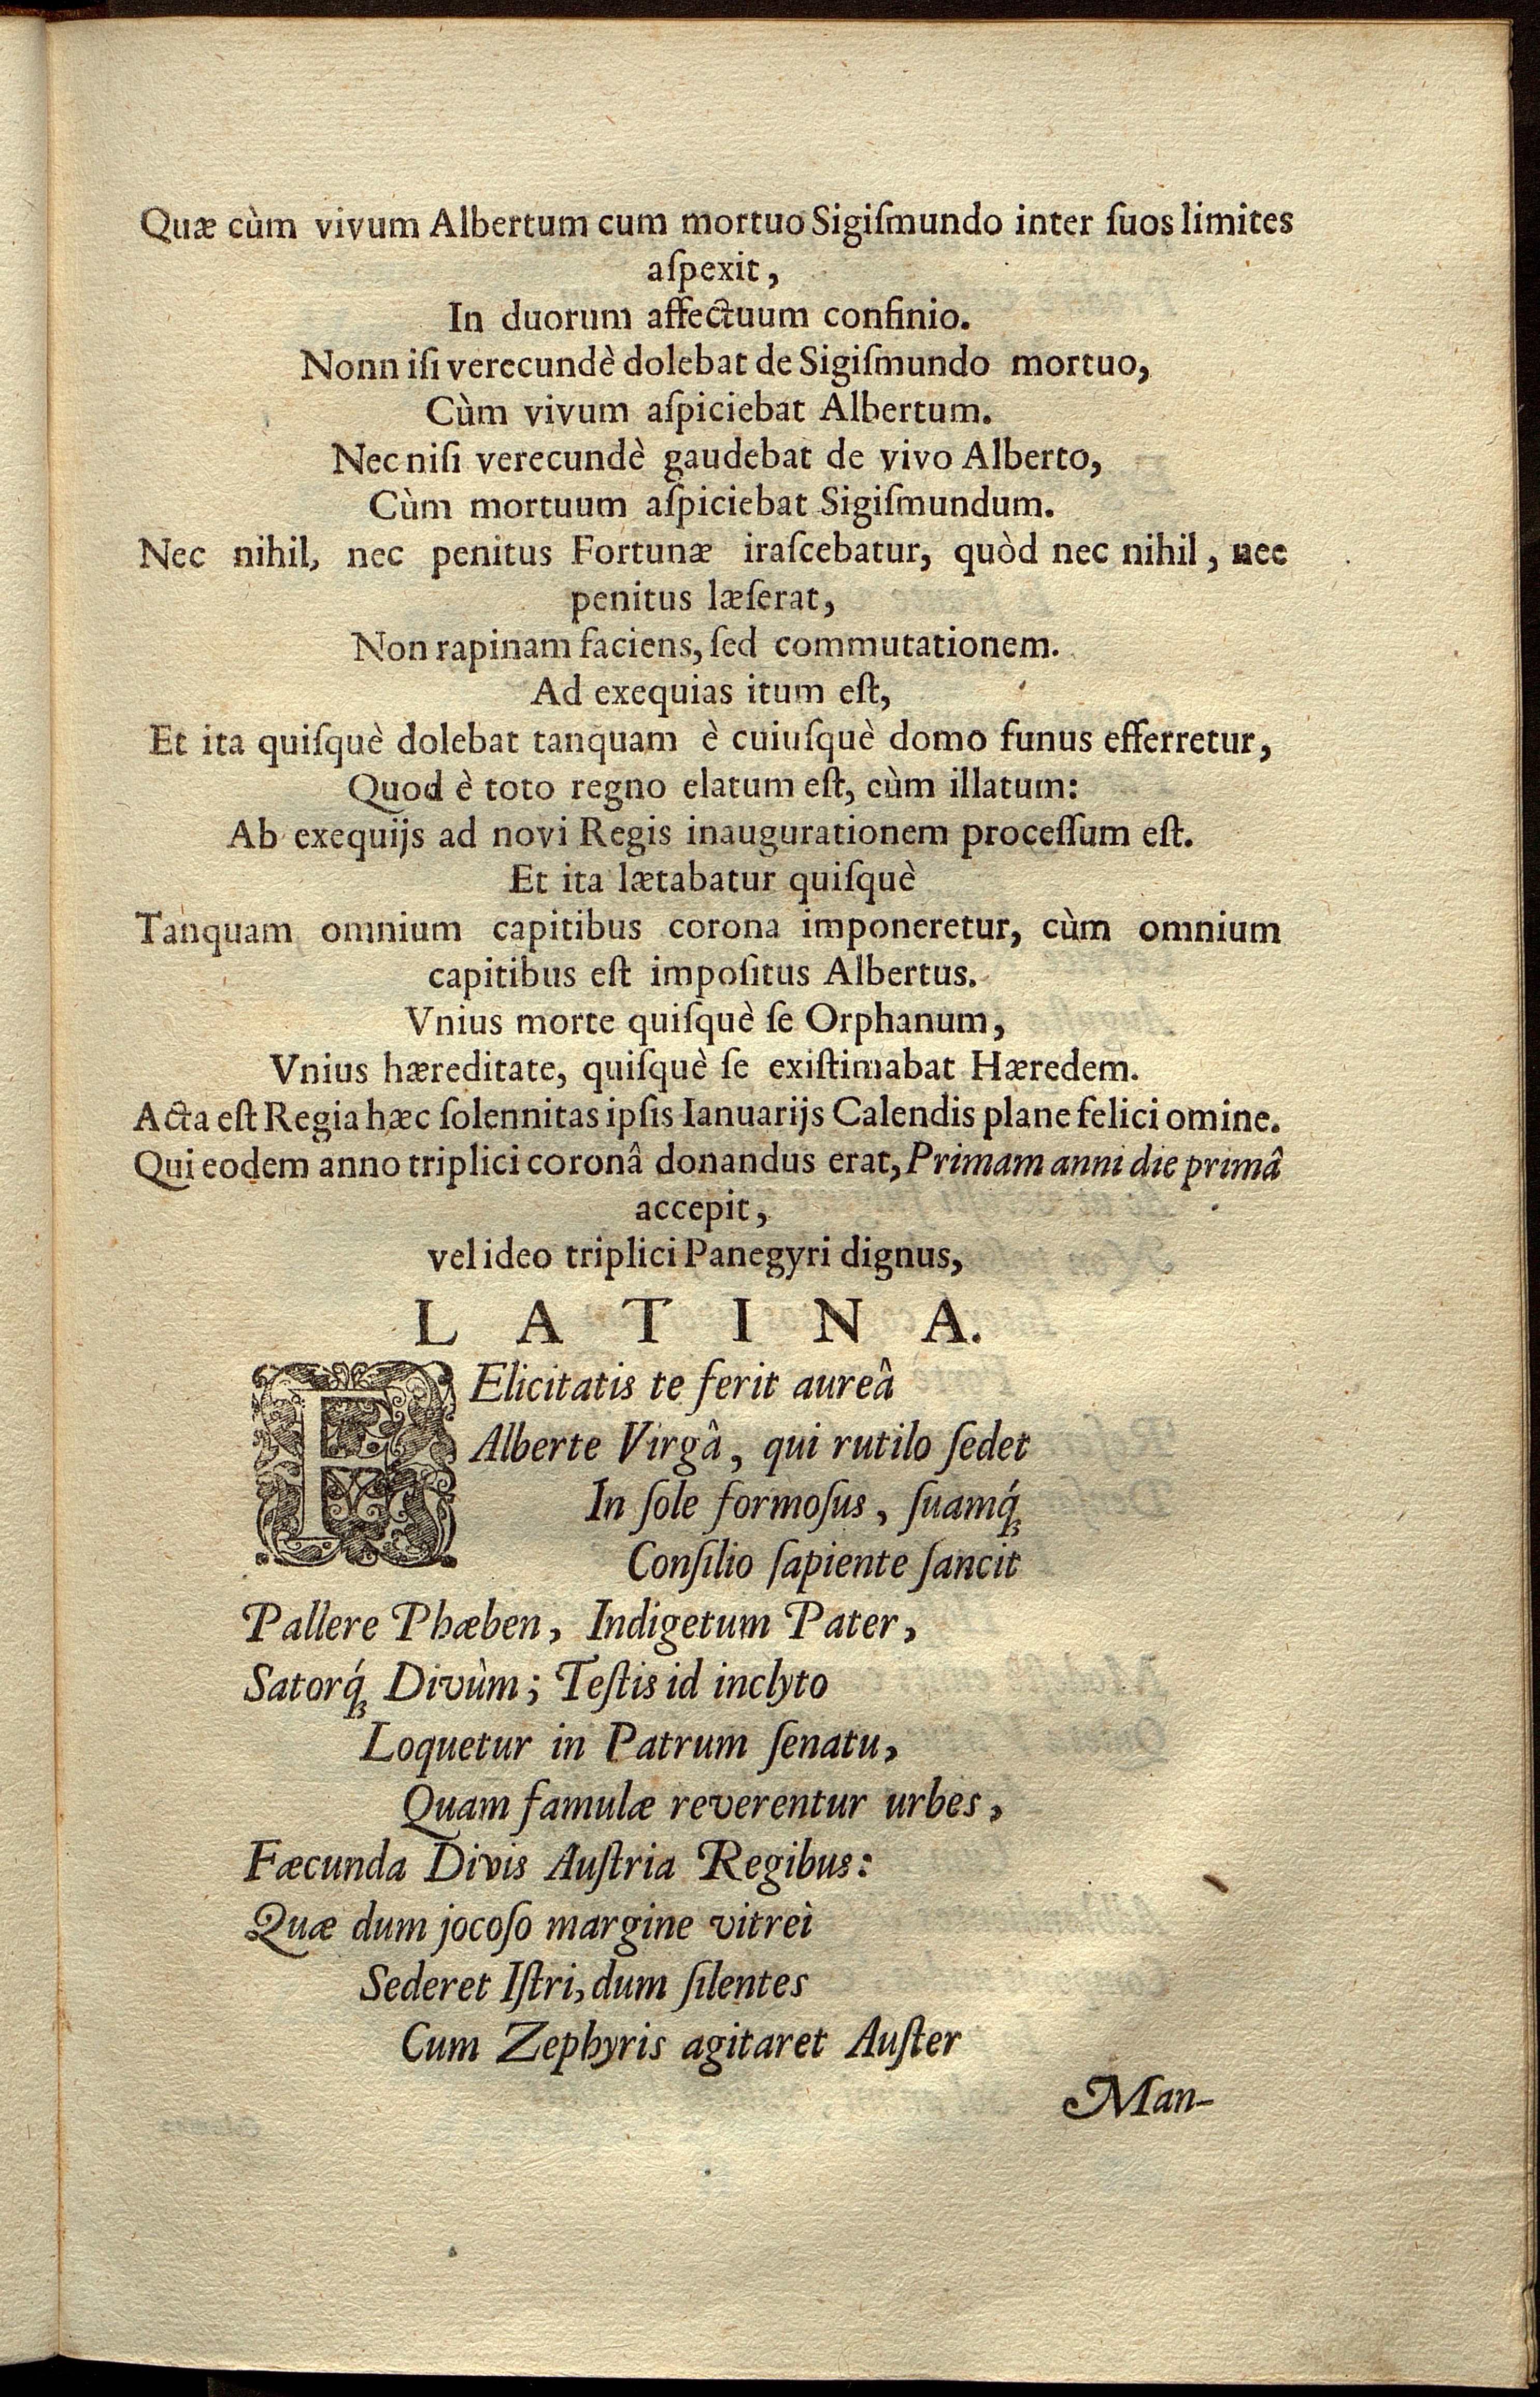 Quæ cùm vivum Albertum cum mortuo Sigiſmundo inter ſuos limites
aſpexit,
In duorum affectuum confinio.
Nonn iſi verecundè dolebat de Sigiſmundo mortuo,
Cùm vivum aſpiciebat Albertum.
Nec niſi verecundè gaudebat de vivo Alberto,
Cùm mortuum aſpiciebat Sigiſmundum.
Nec nihil, nec penitus Fortunæ iraſcebatur, quòd nec nihil, nec
penitus læſerat,
Non rapinam faciens, ſed commutationem.
Ad exequias itum eſt,
Et ita quiſquè dolebat tanquam è cuiuſquè domo funus efferretur,
Quod è toto regno elatum eſt, cùm illatum:
Ab exequijs ad novi Regis inaugurationem proceſſum eſt.
Et ita lætabatur quiſquè
Tanquam omnium capitibus corona imponeretur, cùm omnium
capitibus eſt impoſitus Albertus.
Vnius morte quiſquè ſe Orphanum,
Vnius hæreditate, quiſquè ſe exiſtimabat Hæredem.
Acta eſt Regia hæc ſolennitas ipſis Ianuarijs Calendis plane felici omine.
Qui eodem anno triplici coronâ donandus erat, Primam anni die primâ
accepit,
vel ideo triplici Panegyri dignus,
LATINA.
FElicitatis te ferit aureâ
Alberte Virgâ, qui rutilo ſedet
In ſole formoſus, ſuamq́;
Conſilio ſapiente ſancit
Pallere Phæben, Indigetum Pater,
Satorq́; Divùm; Teſtis id inclyto
Loquetur in Patrum ſenatu,
Quam famulæ reverentur urbes,
Fæcunda Divis Auſtria Regibus:
Quæ dum jocoſo margine vitrei
Sederet Iſtri, dum ſilentes
Cum Zephyris agitaret Auſter
Man-